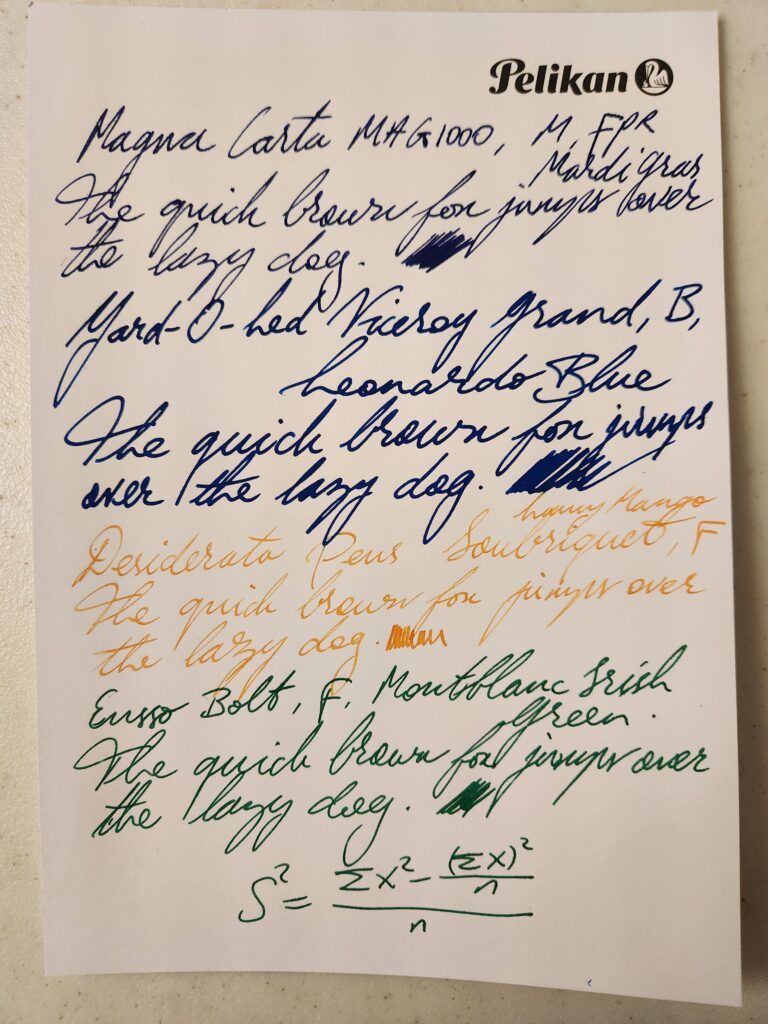 Pelikan
Magna Carta MAG1000, M, FPR
Mardi gras
The quick brown fox jumps over
the lazy dog.
Yard-O-Led Viceroy Grand, B,
Leonardo Blue
The quick brown fox jumps
over the lazy dog.
Mango
Desiderata Pens Soubriquet, F
The quick brown fox jumps over
the lazy dog.
Ensso Bolt, F, Montblanc Irish
Green.
The quick brown fox jumps over
the lazy dog.
S² = (Σx² - (Σx)²/n)/n